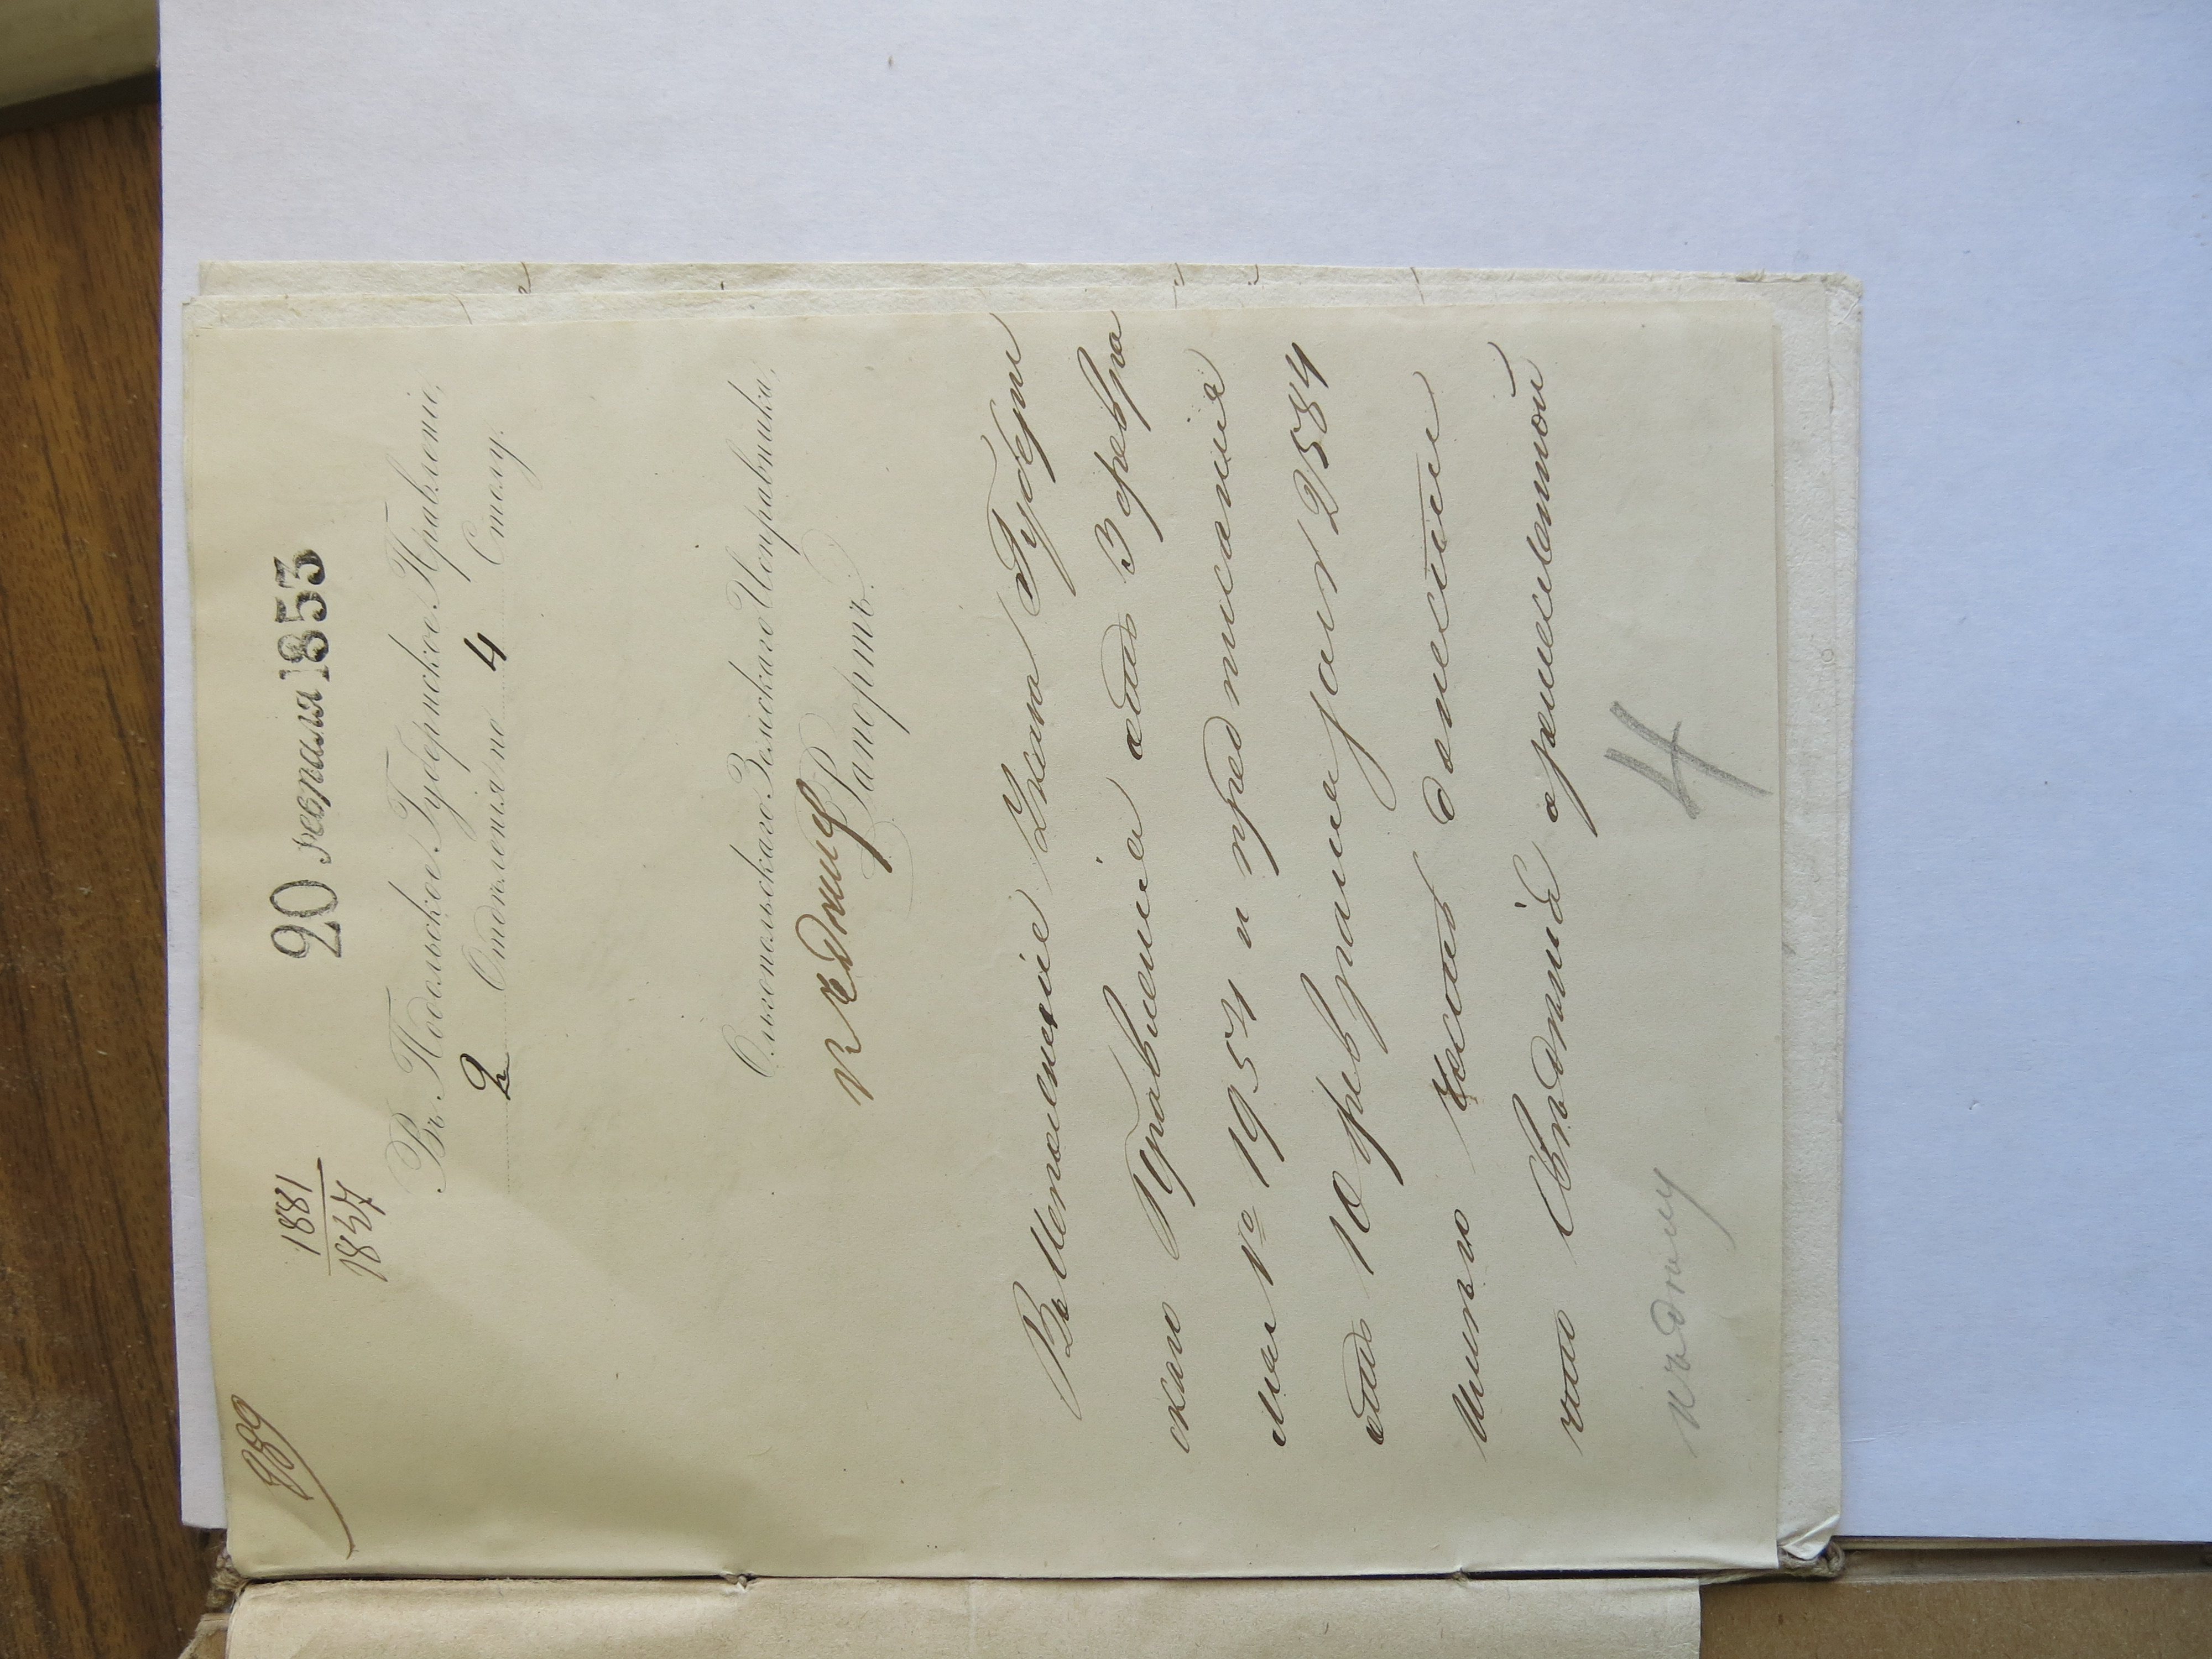 889
1881
1847
20 февраля 1853
Въ Подольское Губернское Правленіе,
2 Отдѣленія по 4 Столу.
Ольгопольскаго Земскаго Исправника,
къ дѣлу
Рапортъ.
Въ Исполненіе Указа Губерн
скаго Правленія отъ 3 февра
ля № 1954 и предписанія
отъ 10 февраля за № 2584
Имѣю честь донести
что Свѣденія о ремесленной
къ дѣлу
4